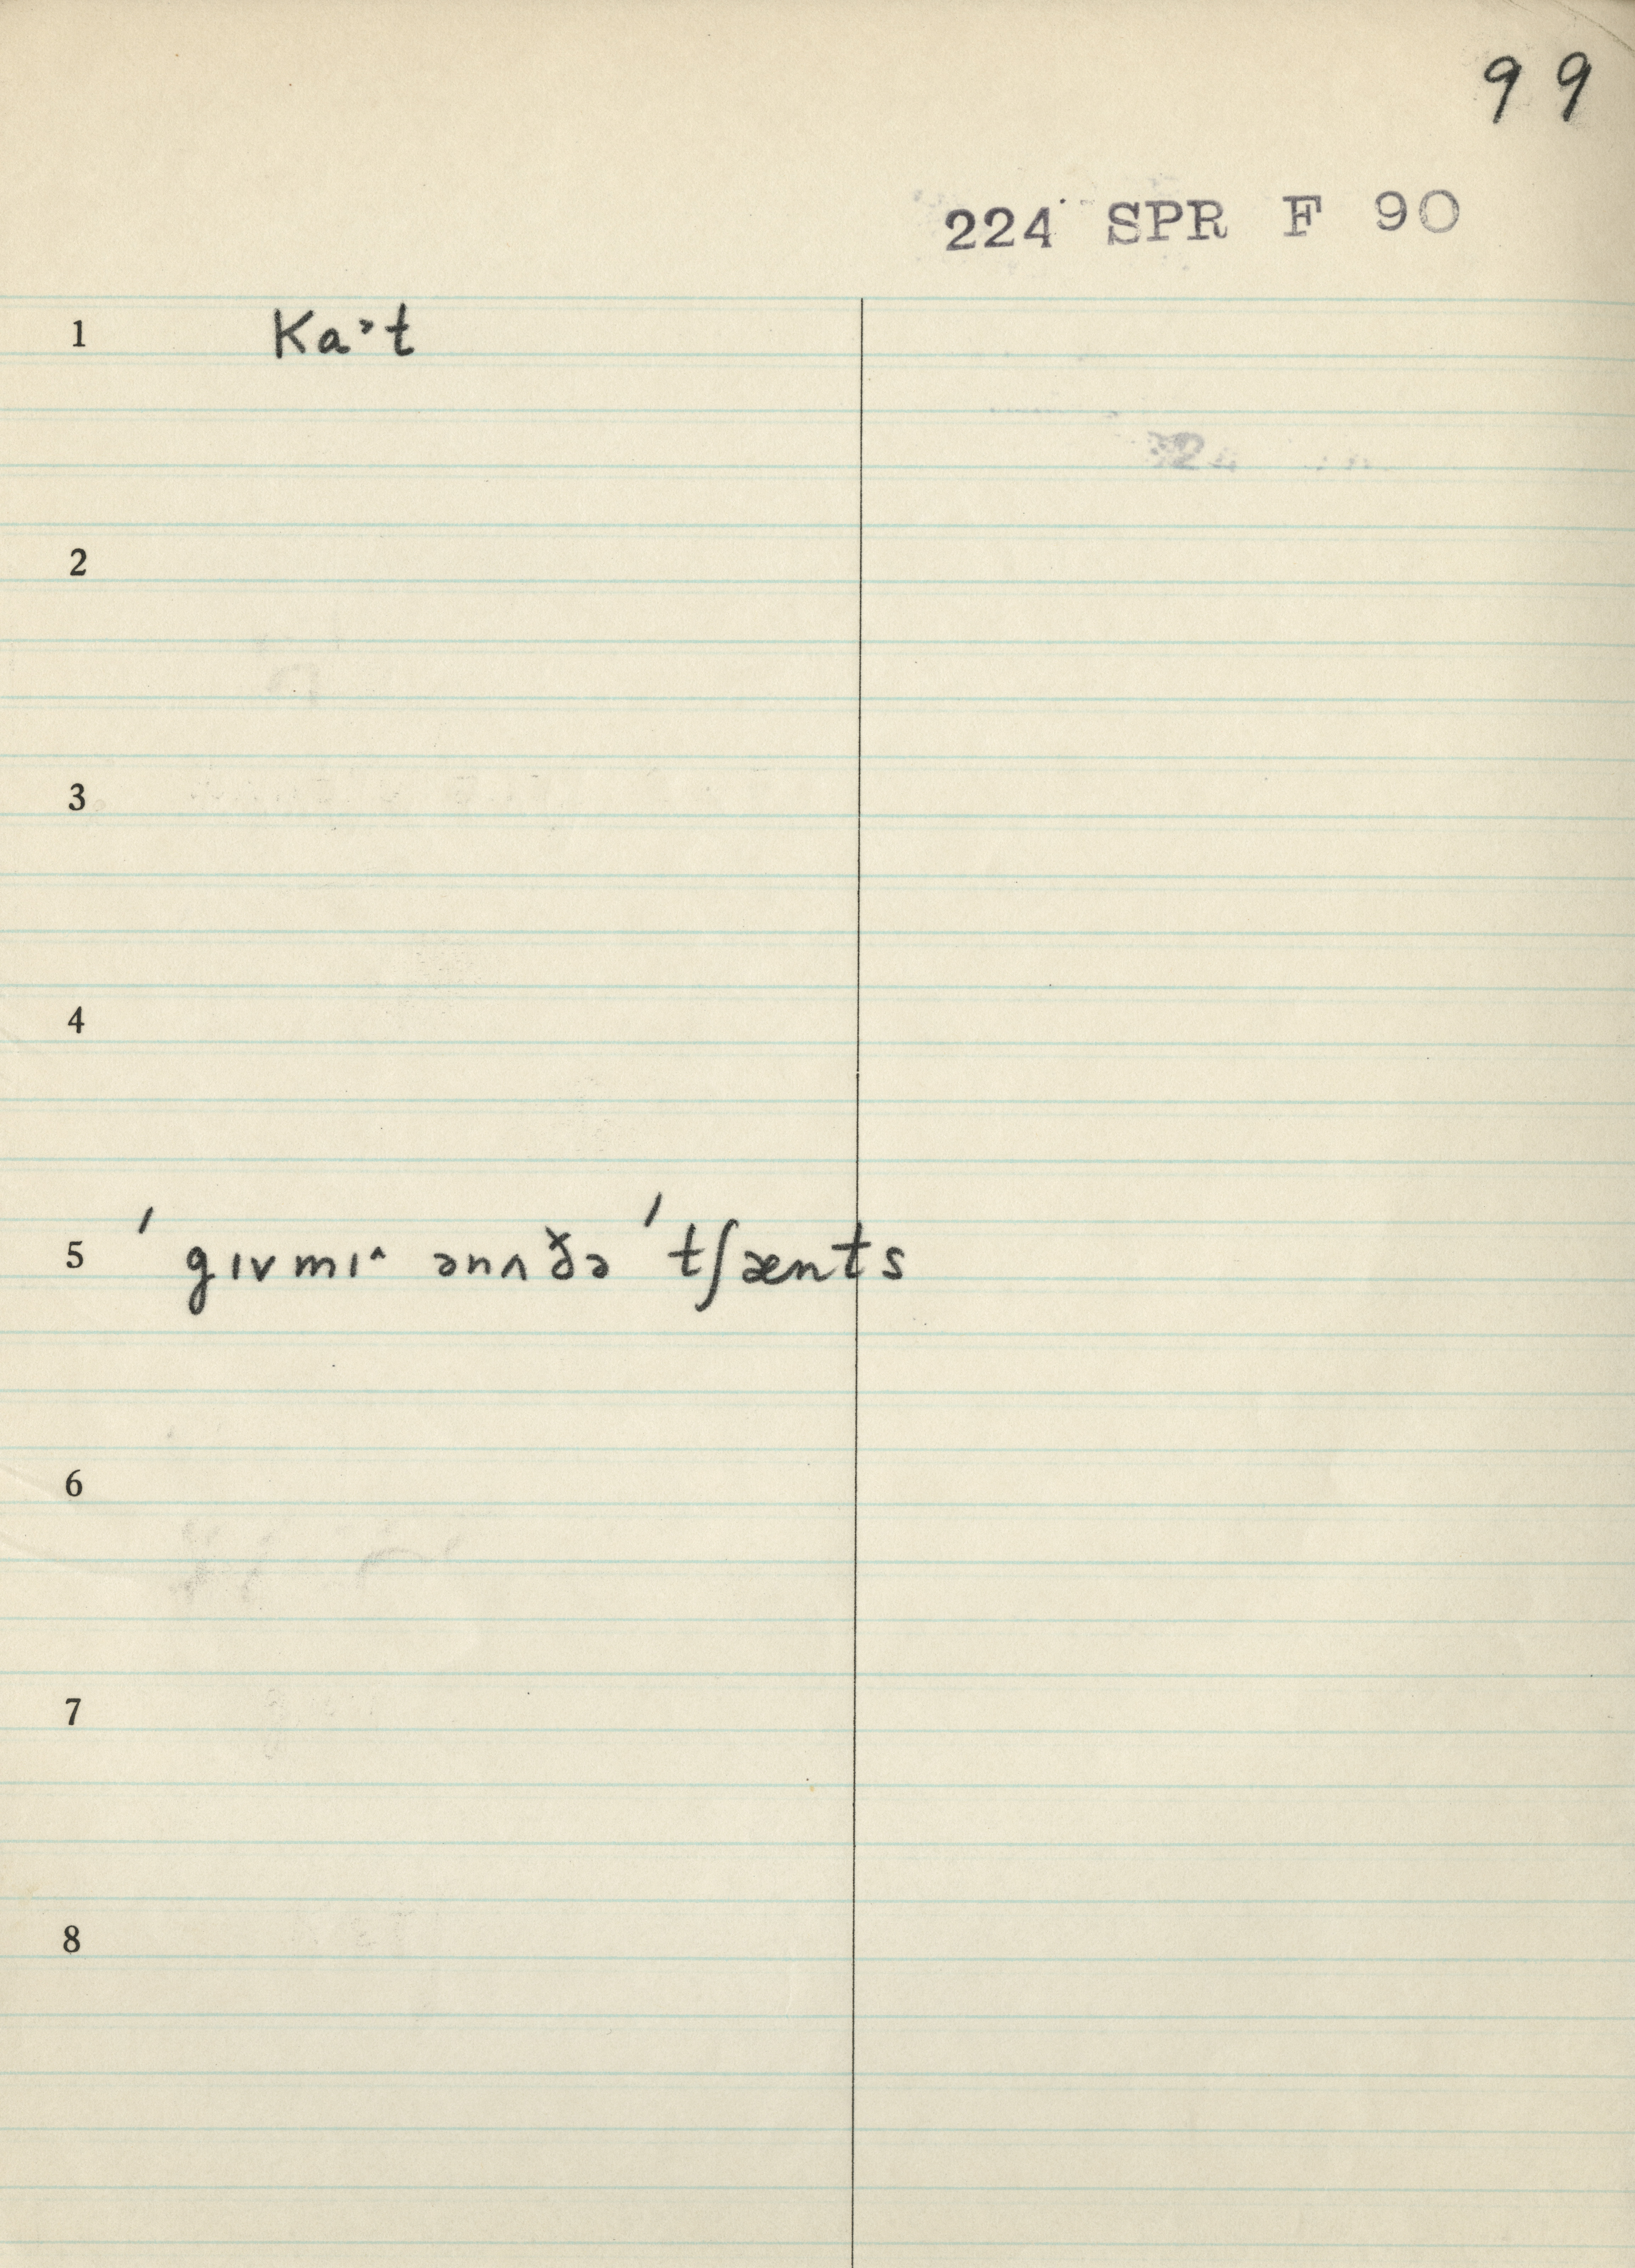 99
224 SPR F 90
1 Ka˃t
2
3
4
5 ˈgɪvmɪ˄ ənʌðə ˈtʃænts
6
7
8